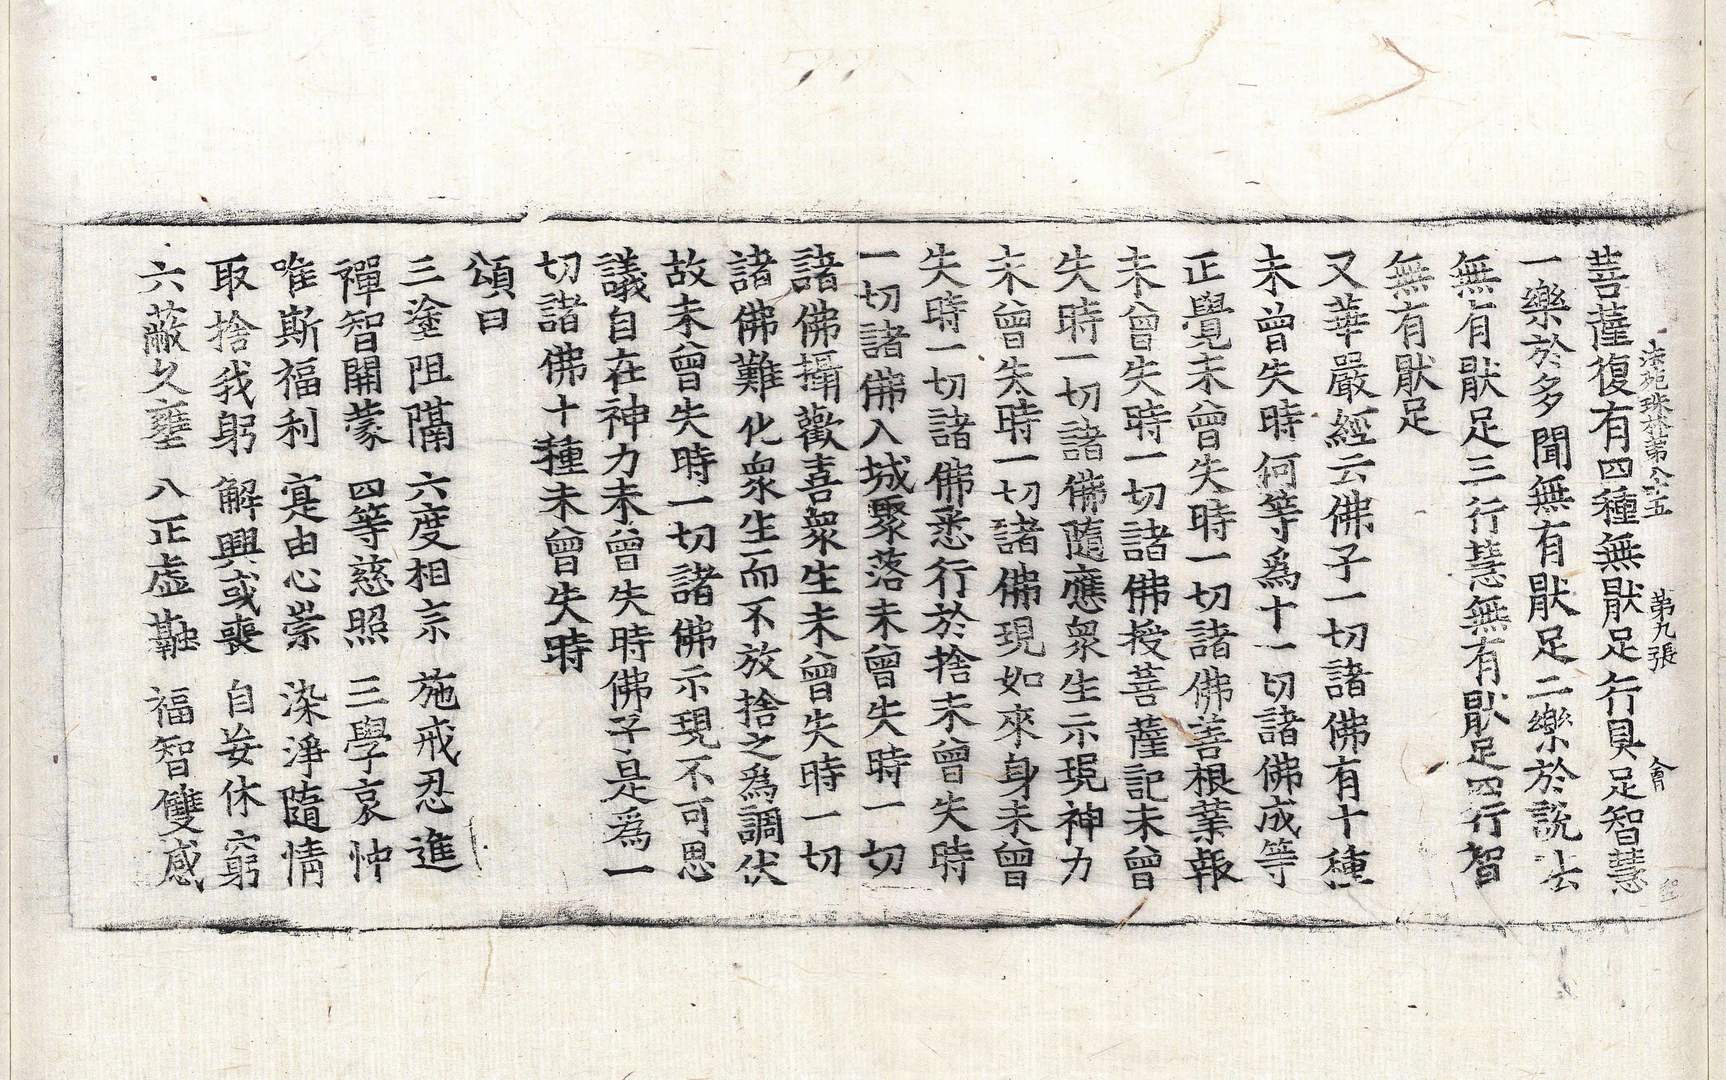 法苑珠林第八十五 第九張 會
菩薩復有四種無猒足行具足智慧
一樂於多聞無有猒足二樂於說法
無有猒足三行慧無有猒足四行智
無有猒足
又華嚴經云佛子一切諸佛有十種
未曾失時何等爲十一切諸佛成等
正覺未曾失時一切諸佛善根業報
未曾失時一切諸佛授菩薩記未曾
失時一切諸佛隨應衆生示現神力
未曾失時一切諸佛現如來身未曾
失時一切諸佛悉行於捨未曾失時
一切諸佛入城聚落未曾失時一切
諸佛攝歡喜衆生未曾失時一切
諸佛難化衆生而不放捨之爲調伏
故未曾失時一切諸佛示現不可思
議自在神力未曾失時佛子是爲一
切諸佛十種未曾失時
頌曰
三塗阻隔 六度相宗 施戒忍進
禪智開蒙 四等慈照 三學哀忡
唯斯福利 寔由心崇 染淨隨情
取捨我躬 解興或喪 自妾休窮
六蔽久壅 八正虛融 福智雙感